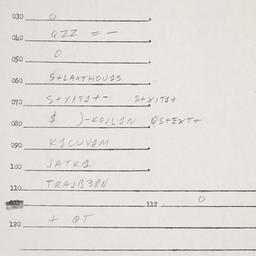 030 O
040 QZZ = -
050 O
060 S+LAXTHOU1S
070 S+XIT1+- S+XIT1+
080 $ )-KOJL1N QS+EXT+
090 K1CUVVIM
100 JATK1
110 TRA1B3RN
112 O
120 + QT